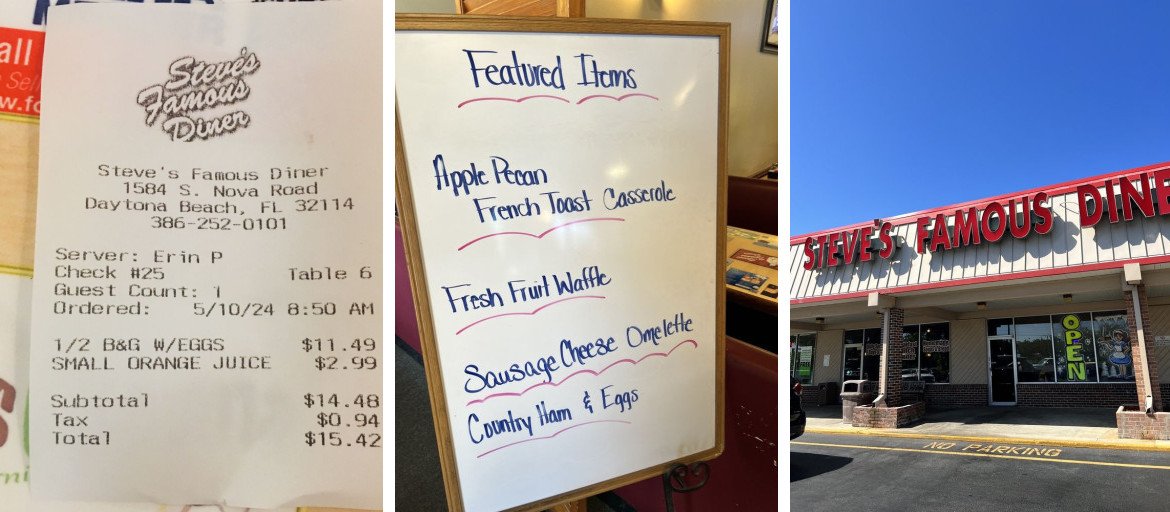 all
Steve's
Famous
Diner
Steve's Famous Diner
1584 S. Nova Road
Daytona Beach, FL 32114
386-252-0101
Server: Erin P
Check #25 Table 6
Guest Count: 1
Ordered: 5/10/24 8:50 AM
1/2 B&G W/EGGS $11.49
SMALL ORANGE JUICE $2.99
Subtotal $14.48
Tax $0.94
Total $15.42
Featured Items
Apple Pecan
French Toast Casserole
Fresh Fruit Waffle
Sausage Cheese Omelette
Country Ham & Eggs
STEVE'S FAMOUS DINE
OPEN
NO PARKING